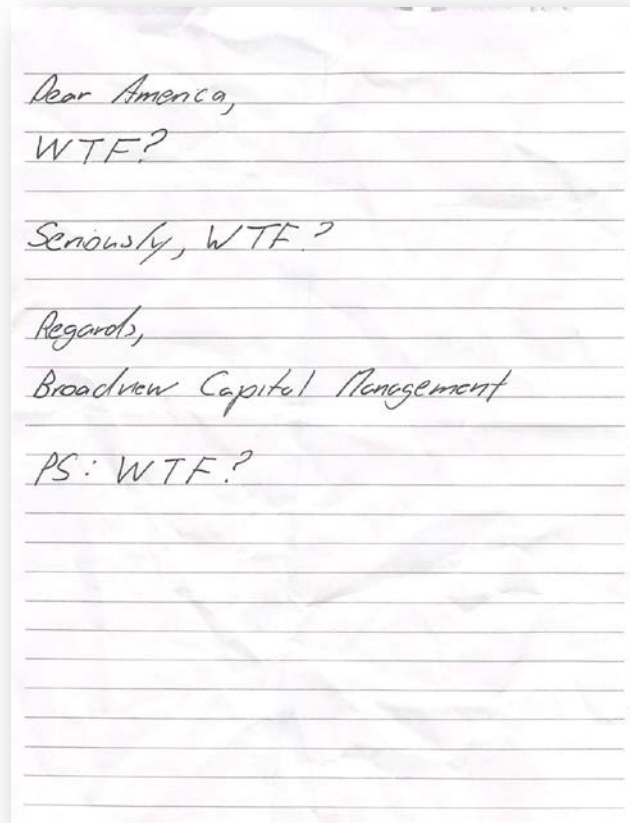 Dear America,
WTF?
Seriously, WTF?
Regards,
Broadview Capital Management
PS: WTF?